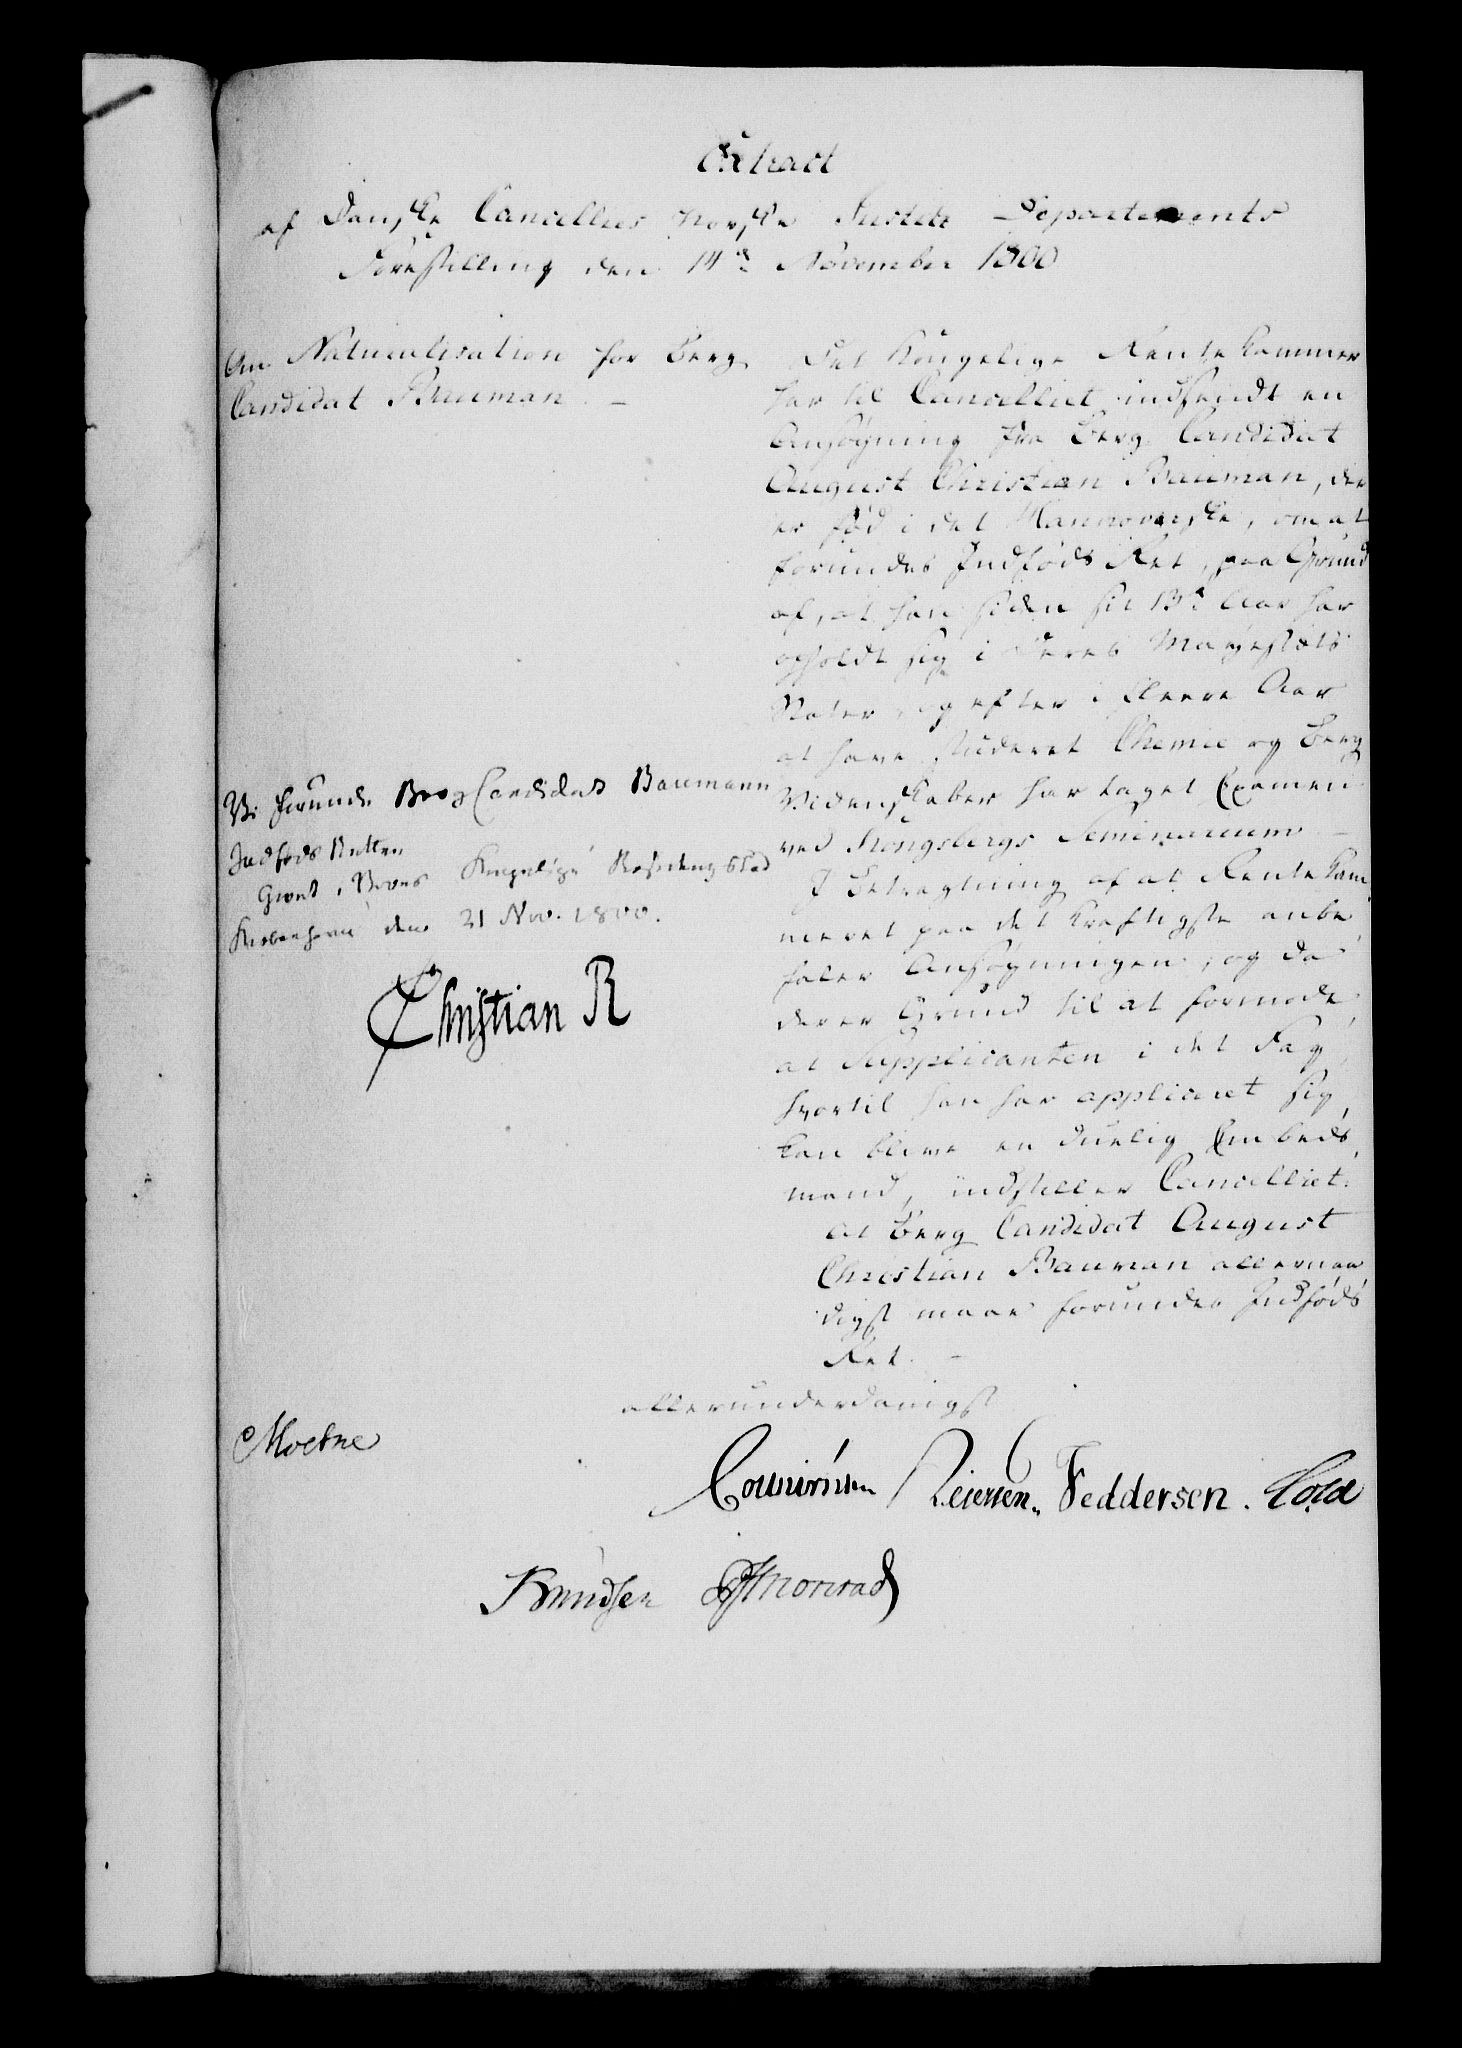 Extract
af Danske Cancellies norske Justitz Departements
Forestilling den 14d November 1800
Om Naturalisation for Berg
Candidat Bauman. –
Det Kongelige Rente Kammer
har til Cancelliet indsendt en
Ansøgning fra Berg Candidat
August Christian Bauman, der
er fød i det Hannoverske, om at
forundes Indføds Ret, paa Grund
af, at han siden sit 13d Aar har
opholdt sig i Deres Majestæts
Stater, og efter i fleere Aar
at have studeret Chemie og Berg
Videnskaber har taget Examen
ved Kongsbergs Seminarium –
I Betragtning af at Rente Kam
meret paa det kraftigste anbe
faler Ansøgningen, og da
der er Grund til at formode,
at Supplicanten i det Fag,
hvortil han har appliceret sig,
kan blive en duelig Embeds
mand, indstiller Cancelliet:
at Berg Candidat August
Christian Bauman allernaa
digst maae forundes Indføds
Ret. –
Vi forunde Berg Candidat Baumann
Indføds Retten
Givet i Vores Kongelige Residenz Stad
Kiøbenhavn den 21 Nov. 1800.
Christian R
allerunderdanigst
Moestue
Reiersen. Feddersen. Cold
Knudsen Monrad